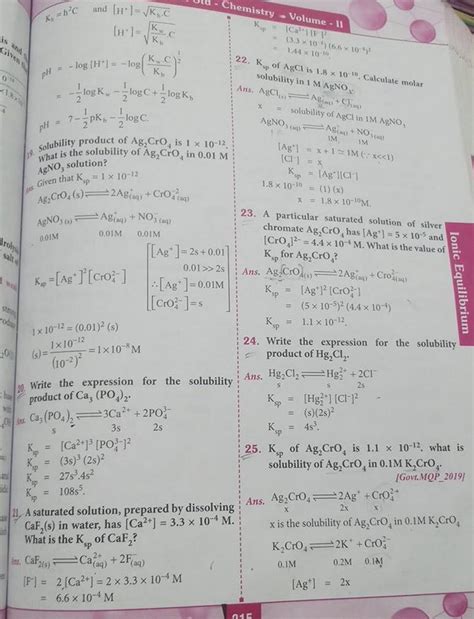 Std - Chemistry ➔ Volume - II
K_h = h²C and [H⁺] = √K_h.C
[H⁺] = √(K_w/K_b . C)
pH = - log [H⁺] = -log (K_w/K_b . C)^½
= -½ logK_w - ½ logC + ½ logK_b
pH = 7 - ½ pK_b - ½ logC.
19. Solubility product of Ag₂CrO₄ is 1 × 10⁻¹².
What is the solubility of Ag₂CrO₄ in 0.01 M
AgNO₃ solution?
Ans. Given that K_sp = 1 × 10⁻¹²
Ag₂CrO₄ (s) ⇌ 2Ag⁺(aq) + CrO₄⁻²(aq)
AgNO₃ (s) ⇌ Ag⁺(aq) + NO₃⁻(aq)
0.01M 0.01M 0.01M
[Ag⁺] = 2s + 0.01
0.01 >> 2s
∴[Ag⁺] = 0.01M
[CrO₄²⁻] = s
K_sp = [Ag⁺]² [CrO₄²⁻]
1×10⁻¹² = (0.01)² (s)
(s) = 1×10⁻¹²/(10⁻²)² = 1×10⁻⁸ M
20. Write the expression for the solubility
product of Ca₃ (PO₄)₂.
Ans. Ca₃ (PO₄)₂ ⇌ 3Ca²⁺ + 2PO₄³⁻
s 3s 2s
K_sp = [Ca²⁺]³ [PO₄³⁻]²
K_sp = (3s)³ (2s)²
K_sp = 27s³.4s²
K_sp = 108s⁵.
21. A saturated solution, prepared by dissolving
CaF₂(s) in water, has [Ca²⁺] = 3.3 × 10⁻⁴ M.
What is the K_sp of CaF₂?
Ans. CaF₂(s) ⇌ Ca²⁺(aq) + 2F⁻(aq)
[F⁻] = 2 [Ca²⁺] = 2 × 3.3 × 10⁻⁴ M
= 6.6 × 10⁻⁴ M
K_sp = [Ca²⁺] [F⁻]²
= (3.3 × 10⁻⁴) (6.6 × 10⁻⁴)²
= 1.44 × 10⁻¹⁰
22. K_sp of AgCl is 1.8 × 10⁻¹⁰. Calculate molar
solubility in 1 M AgNO₃
Ans. AgCl(s) ⇌ Ag⁺(aq) + Cl⁻(aq)
x = solubility of AgCl in 1M AgNO₃
AgNO₃ (aq) ⇌ Ag⁺(aq) + NO₃⁻(aq)
1M 1M
[Ag⁺] = x + 1 ≃ 1M (∵ x<<1)
[Cl⁻] = x
K_sp = [Ag⁺][Cl⁻]
1.8 × 10⁻¹⁰ = (1) (x)
x = 1.8 × 10⁻¹⁰M.
23. A particular saturated solution of silver
chromate Ag₂CrO₄ has [Ag⁺] = 5 × 10⁻⁵ and
[CrO₄]²⁻ = 4.4 × 10⁻⁴ M. What is the value of
K_sp for Ag₂CrO₄?
Ans. Ag₂CrO₄(s) ⇌ 2Ag⁺(aq) + Cro₄²⁻(aq)
K_sp = [Ag⁺]² [CrO₄²⁻]
= (5 × 10⁻⁵)² (4.4 × 10⁻⁴)
K_sp = 1.1 × 10⁻¹².
24. Write the expression for the solubility
product of Hg₂Cl₂.
Ans. Hg₂Cl₂ ⇌ Hg₂²⁺ + 2Cl⁻
s s 2s
K_sp = [Hg₂²⁺] [Cl⁻]²
= (s)(2s)²
K_sp = 4s³.
25. K_sp of Ag₂CrO₄ is 1.1 × 10⁻¹². what is
solubility of Ag₂CrO₄ in 0.1M K₂CrO₄.
[Govt.MQP_2019]
Ans. Ag₂CrO₄ ⇌ 2Ag⁺ + CrO₄²⁻
x 2x x
x is the solubility of Ag₂CrO₄ in 0.1M K₂CrO₄
K₂CrO₄ ⇌ 2K⁺ + CrO₄²⁻
0.1M 0.2M 0.1M
[Ag⁺] = 2x
Ionic Equilibrium
215